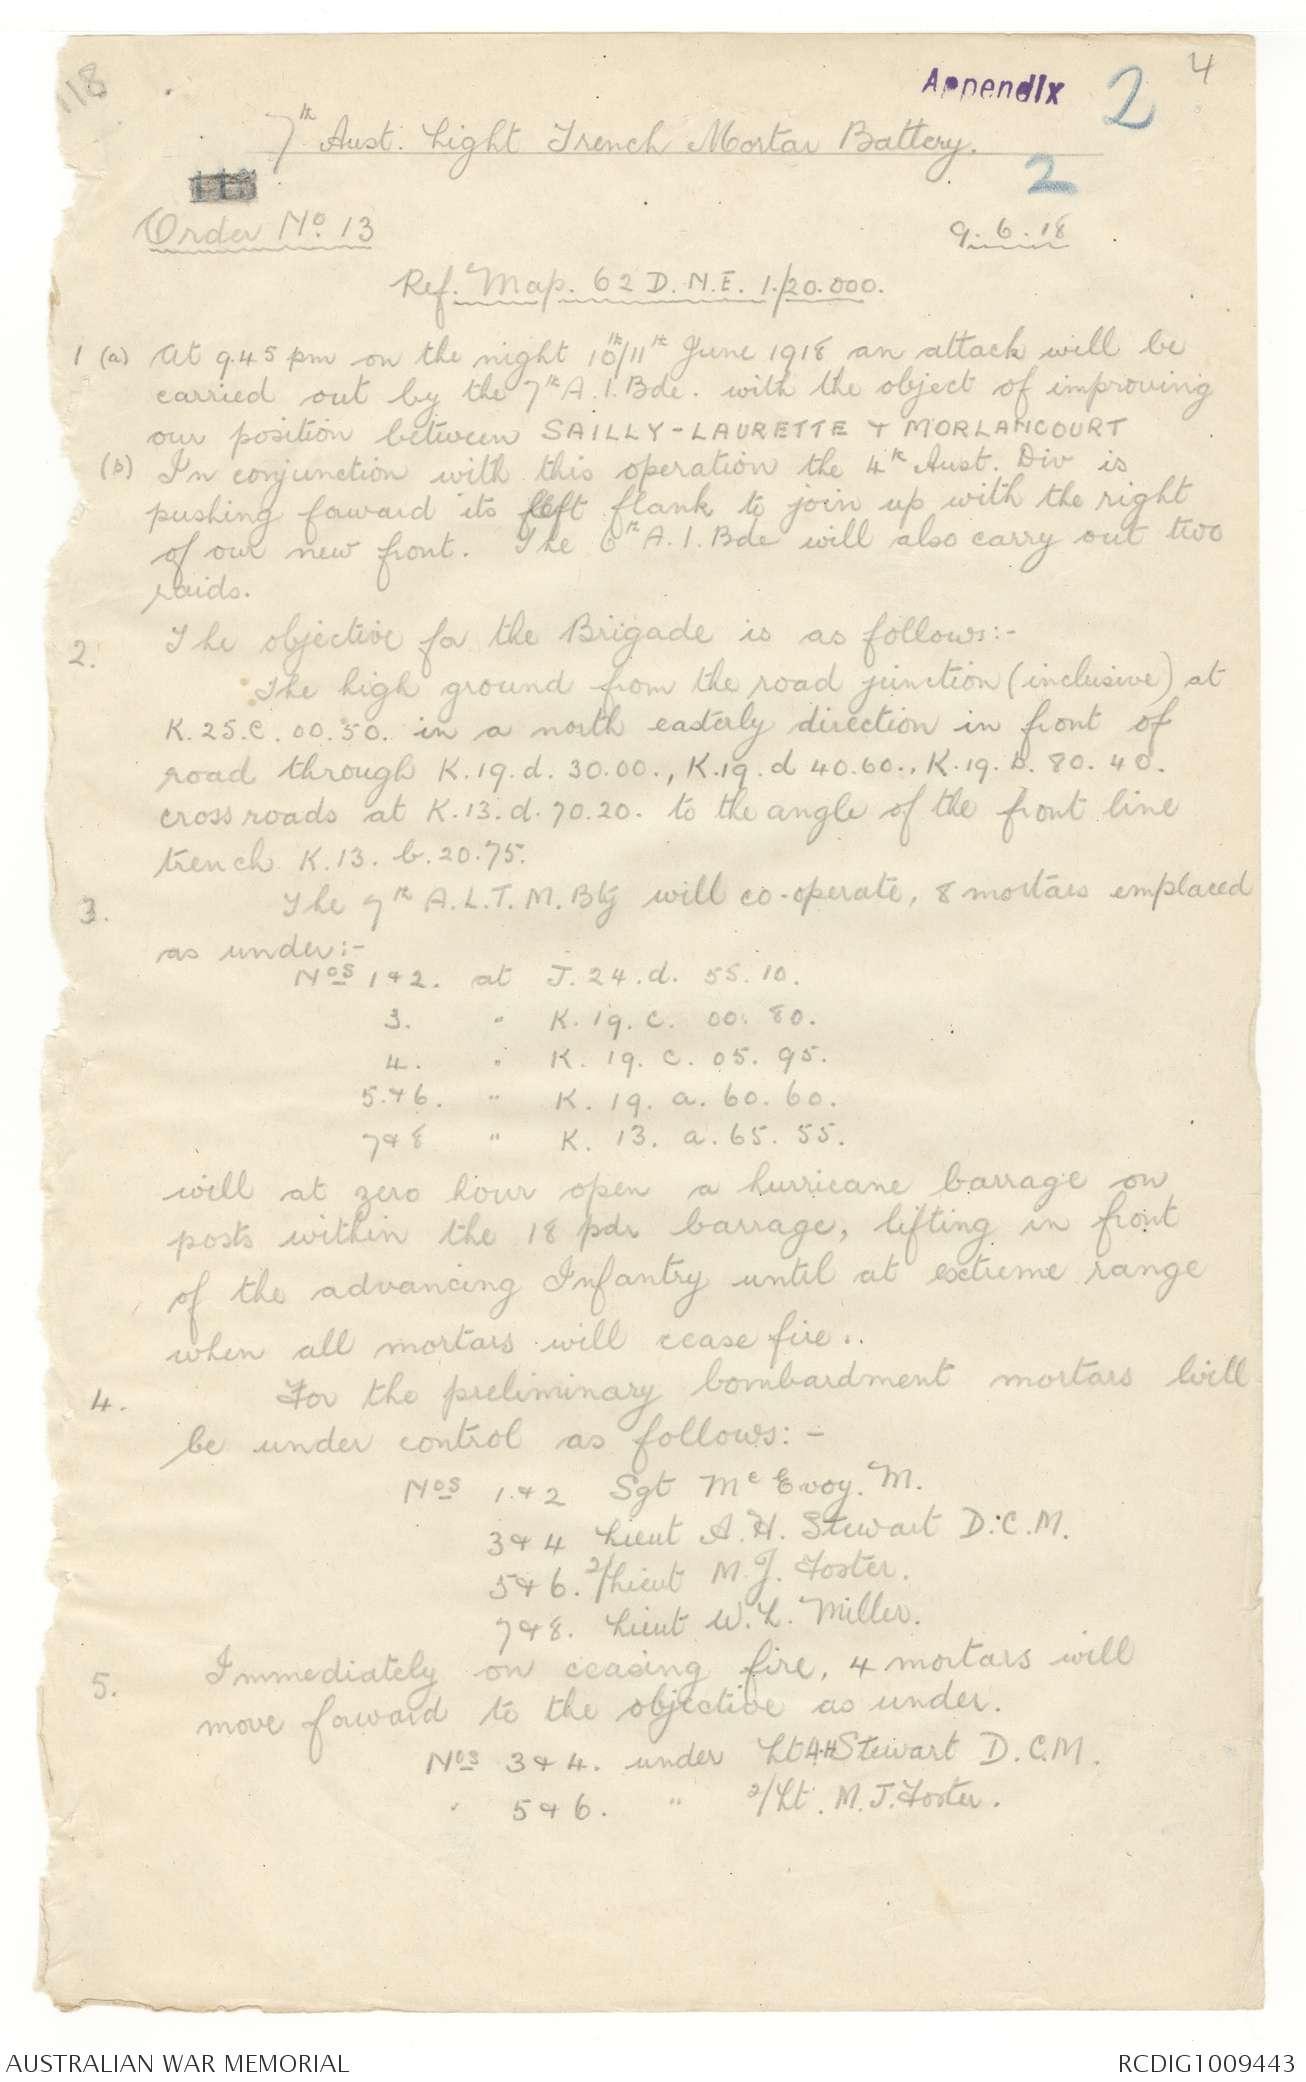 118
Appendix 2 4
7th Aust. Light Trench Mortar Battery.
2
Order No. 13 9.6.18
Ref. Map. 62 D. N.E. 1./20.000.
1 (a) At 9.45 pm on the night 10th/11th June 1918 an attack will be
carried out by the 7th A.I.Bde. with the object of improving
our position between SAILLY-LAURETTE & MORLANCOURT
(b) In conjunction with this operation the 4th Aust. Div is
pushing forward its left flank to join up with the right
of our new front. The 6th A.I.Bde will also carry out two
raids.
2. The objective for the Brigade is as follows:-
The high ground from the road junction (inclusive) at
K.25.C.00.50. in a north easterly direction in front of
road through K.19.d.30.00., K.19.d 40.60., K.19.b.80.40.
cross roads at K.13.d.70.20. to the angle of the front line
trench K.13.b.20.75.
3. The 7th A.L.T.M.Bty will co-operate, 8 mortars emplaced
as under:-
Nos 1 & 2. at J.24.d. 55.10.
3. " K.19.c. 00.80.
4. " K.19.c. 05.95.
5.&6. " K.19.a.60.60.
7&8 " K.13.a.65.55.
will at zero hour open a hurricane barrage on
posts within the 18 pdr barrage, lifting in front
of the advancing Infantry until at extreme range
when all mortars will cease fire..
4. For the preliminary bombardment mortars will
be under control as follows:-
Nos 1.&2 Sgt McEvoy. M.
3&4 Lieut A.H. Stewart D.C.M.
5&6. 2/Lieut M.J. Foster.
7&8. Lieut W.L. Miller.
5. Immediately on ceasing fire, 4 mortars will
move forward to the objective as under.
Nos 3&4. under Lt A.H Stewart D.C.M.
" 5&6. " 2/Lt. M.J. Foster.
AUSTRALIAN WAR MEMORIAL RCDIG1009443